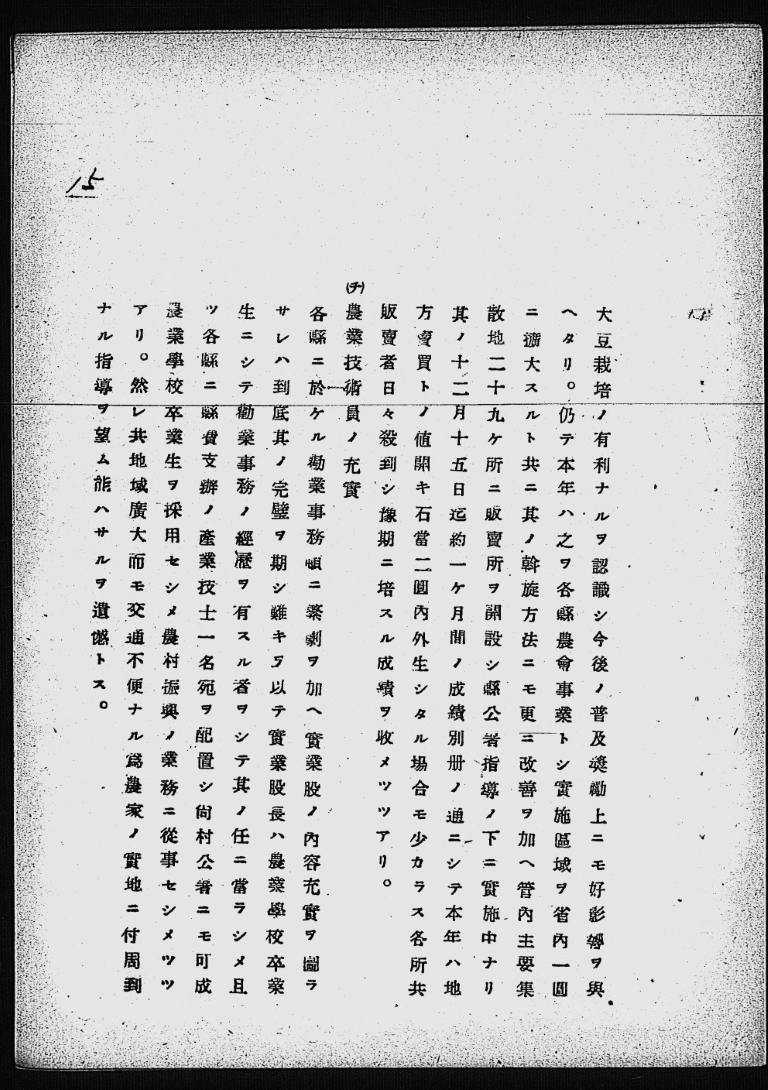 15
大豆栽培ノ有利ナルヲ認識シ今後ノ普及奬勵上ニモ好影響ヲ與
ヘタリ。仍テ本年ハ之ヲ各縣農會事業トシ實施區域ヲ省內一圓
ニ擴大スルト共ニ其ノ斡旋方法ニモ更ニ改善ヲ加ヘ管內主要集
散地二十九ケ所ニ販賣所ヲ開設シ縣公署指導ノ下ニ實施中ナリ
其ノ十二月十五日迄約一ケ月間ノ成績別册ノ通ニシテ本年ハ地
方賣買トノ値開キ石當二圓內外生シタル場合モ少カラス各所共
販賣者日々殺到シ豫期ニ培スル成績ヲ收メツツアリ。
(チ)農業技術員ノ充實
各縣ニ於ケル勸業事務頓ニ繁劇ヲ加ヘ實業股ノ內容充實ヲ圖ラ
サレハ到底其ノ完璧ヲ期シ難キヲ以テ實業股長ハ農業學校卒業
生ニシテ勸業事務ノ經歷ヲ有スル者ヲシテ其ノ任ニ當ラシメ且
ツ各縣ニ縣費支辦ノ產業技士一名宛ヲ配置シ尙村公署ニモ可成
農業學校卒業生ヲ採用セシメ農村振興ノ業務ニ從事セシメツツ
アリ。然レ共地域廣大而モ交通不便ナル爲農家ノ實地ニ付周到
ナル指導ヲ望ム能ハサルヲ遺憾トス。